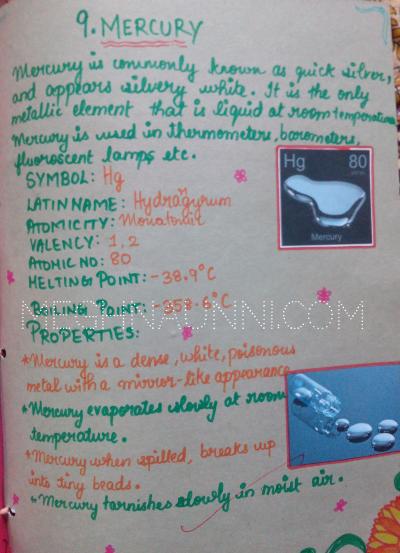 9. MERCURY
Mercury is commonly known as quick silver,
and appears silvery white. It is the only
metallic element that is liquid at room temperature
Mercury is used in thermometers, barometers,
fluoroscent lamps etc.
SYMBOL: Hg
LATIN NAME: Hydrargyrum
ATOMICITY: Monatomic
VALENCY: 1, 2
ATOMIC NO: 80
MELTING POINT: -38.9°C
BOILING POINT: -358.6°C
PROPERTIES:
*Mercury is a dense, white, poisonous
metal with a mirror-like appearance
*Mercury evaporates slowly at room
temperature.
*Mercury when spilled, breaks up
into tiny beads.
*Mercury tarnishes slowly in moist air.
Hg 80
Mercury
MEGHNAUNNI.COM